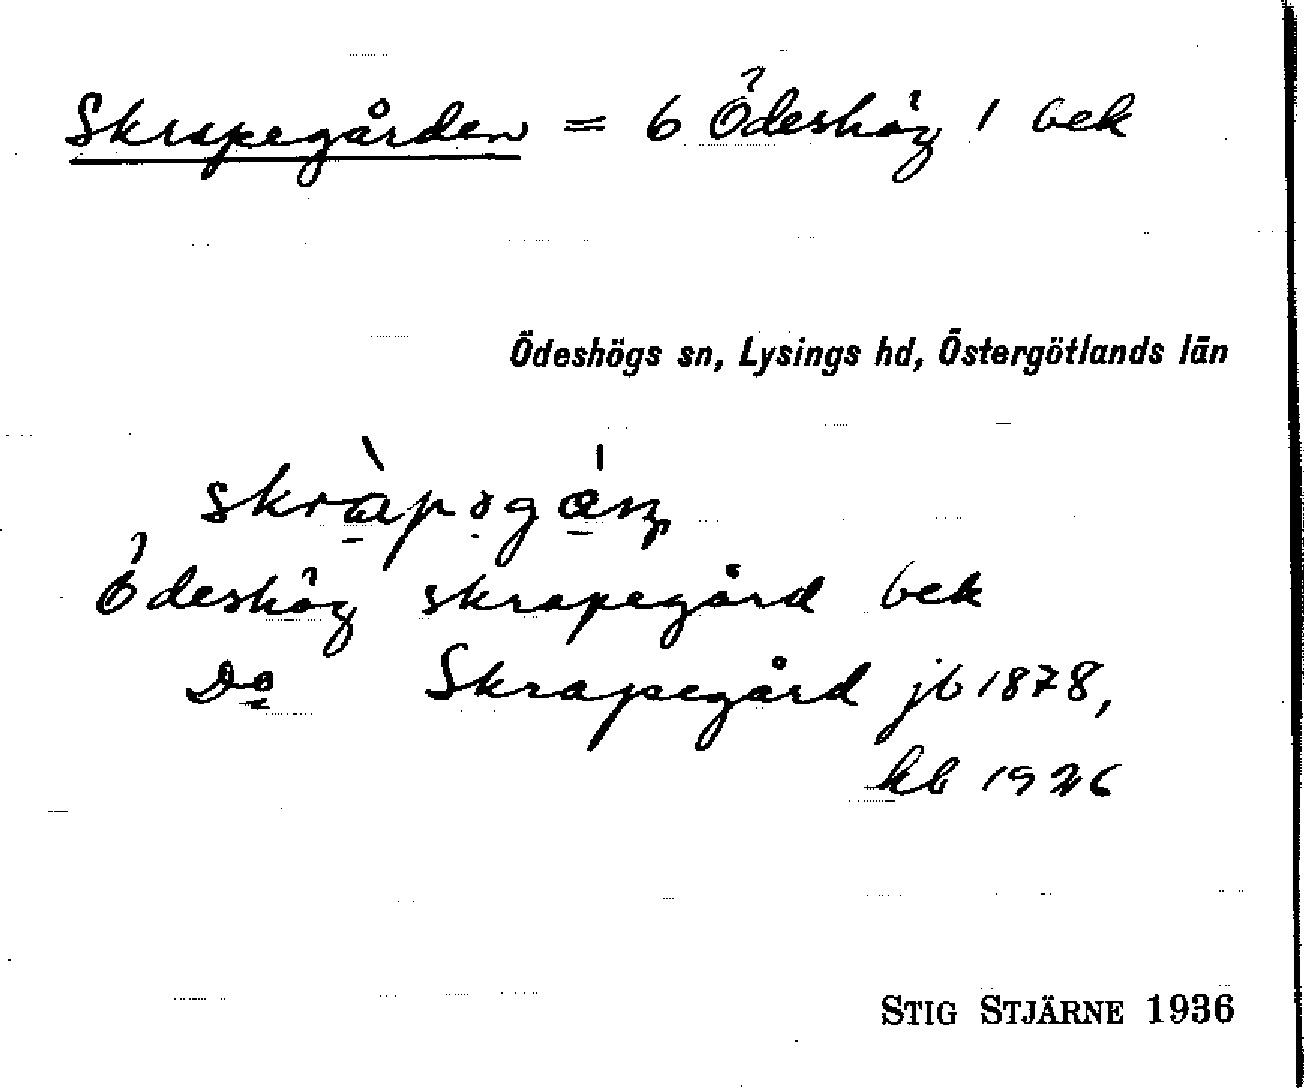 Skrapegården = 6 Ödeshög 1 bek
Ödeshögs sn, Lysings hd, Östergötlands län
Ödeshög skrapegård bek
Do Skrapegård jb 1878,
kb 1926
STIG STJÄRNE 1936